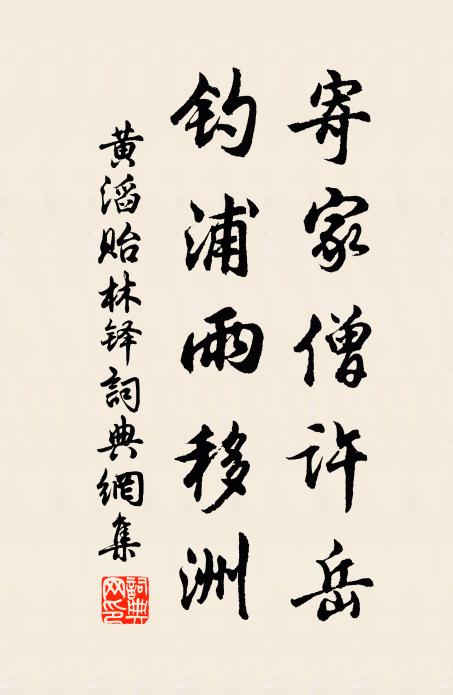 寄家僧许岳
钓浦雨移洲
黄滔贻林铎詞典網集
詞典网印